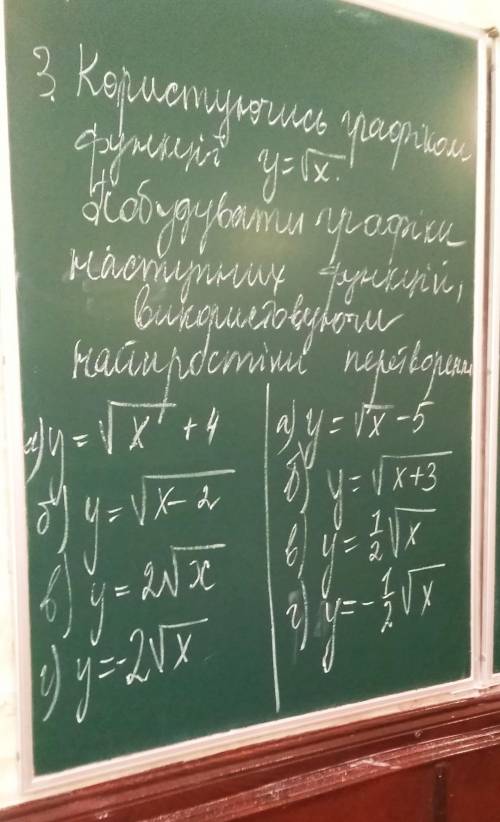 3. Користуючись графіком
функції y=√x.
Побудувати графіки
наступних функцій,
використовуючи
найпростіші перетворення
а) y = √x + 4
б) y = √x-2
в) y = 2√x
г) y = -2√x
а) y = √x - 5
б) y = √x+3
в) y = 1/2 √x
г) y = - 1/2 √x